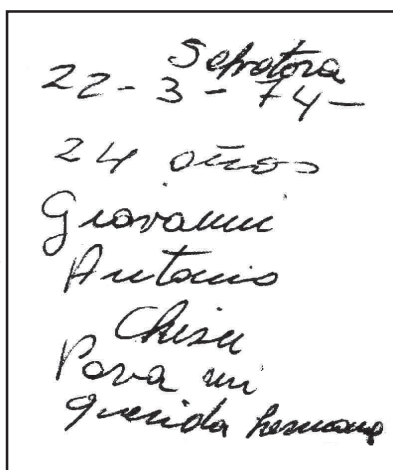 22-3-74-
24 años
Giovanni
Antonio
Chisu
Para mi
querida hermana